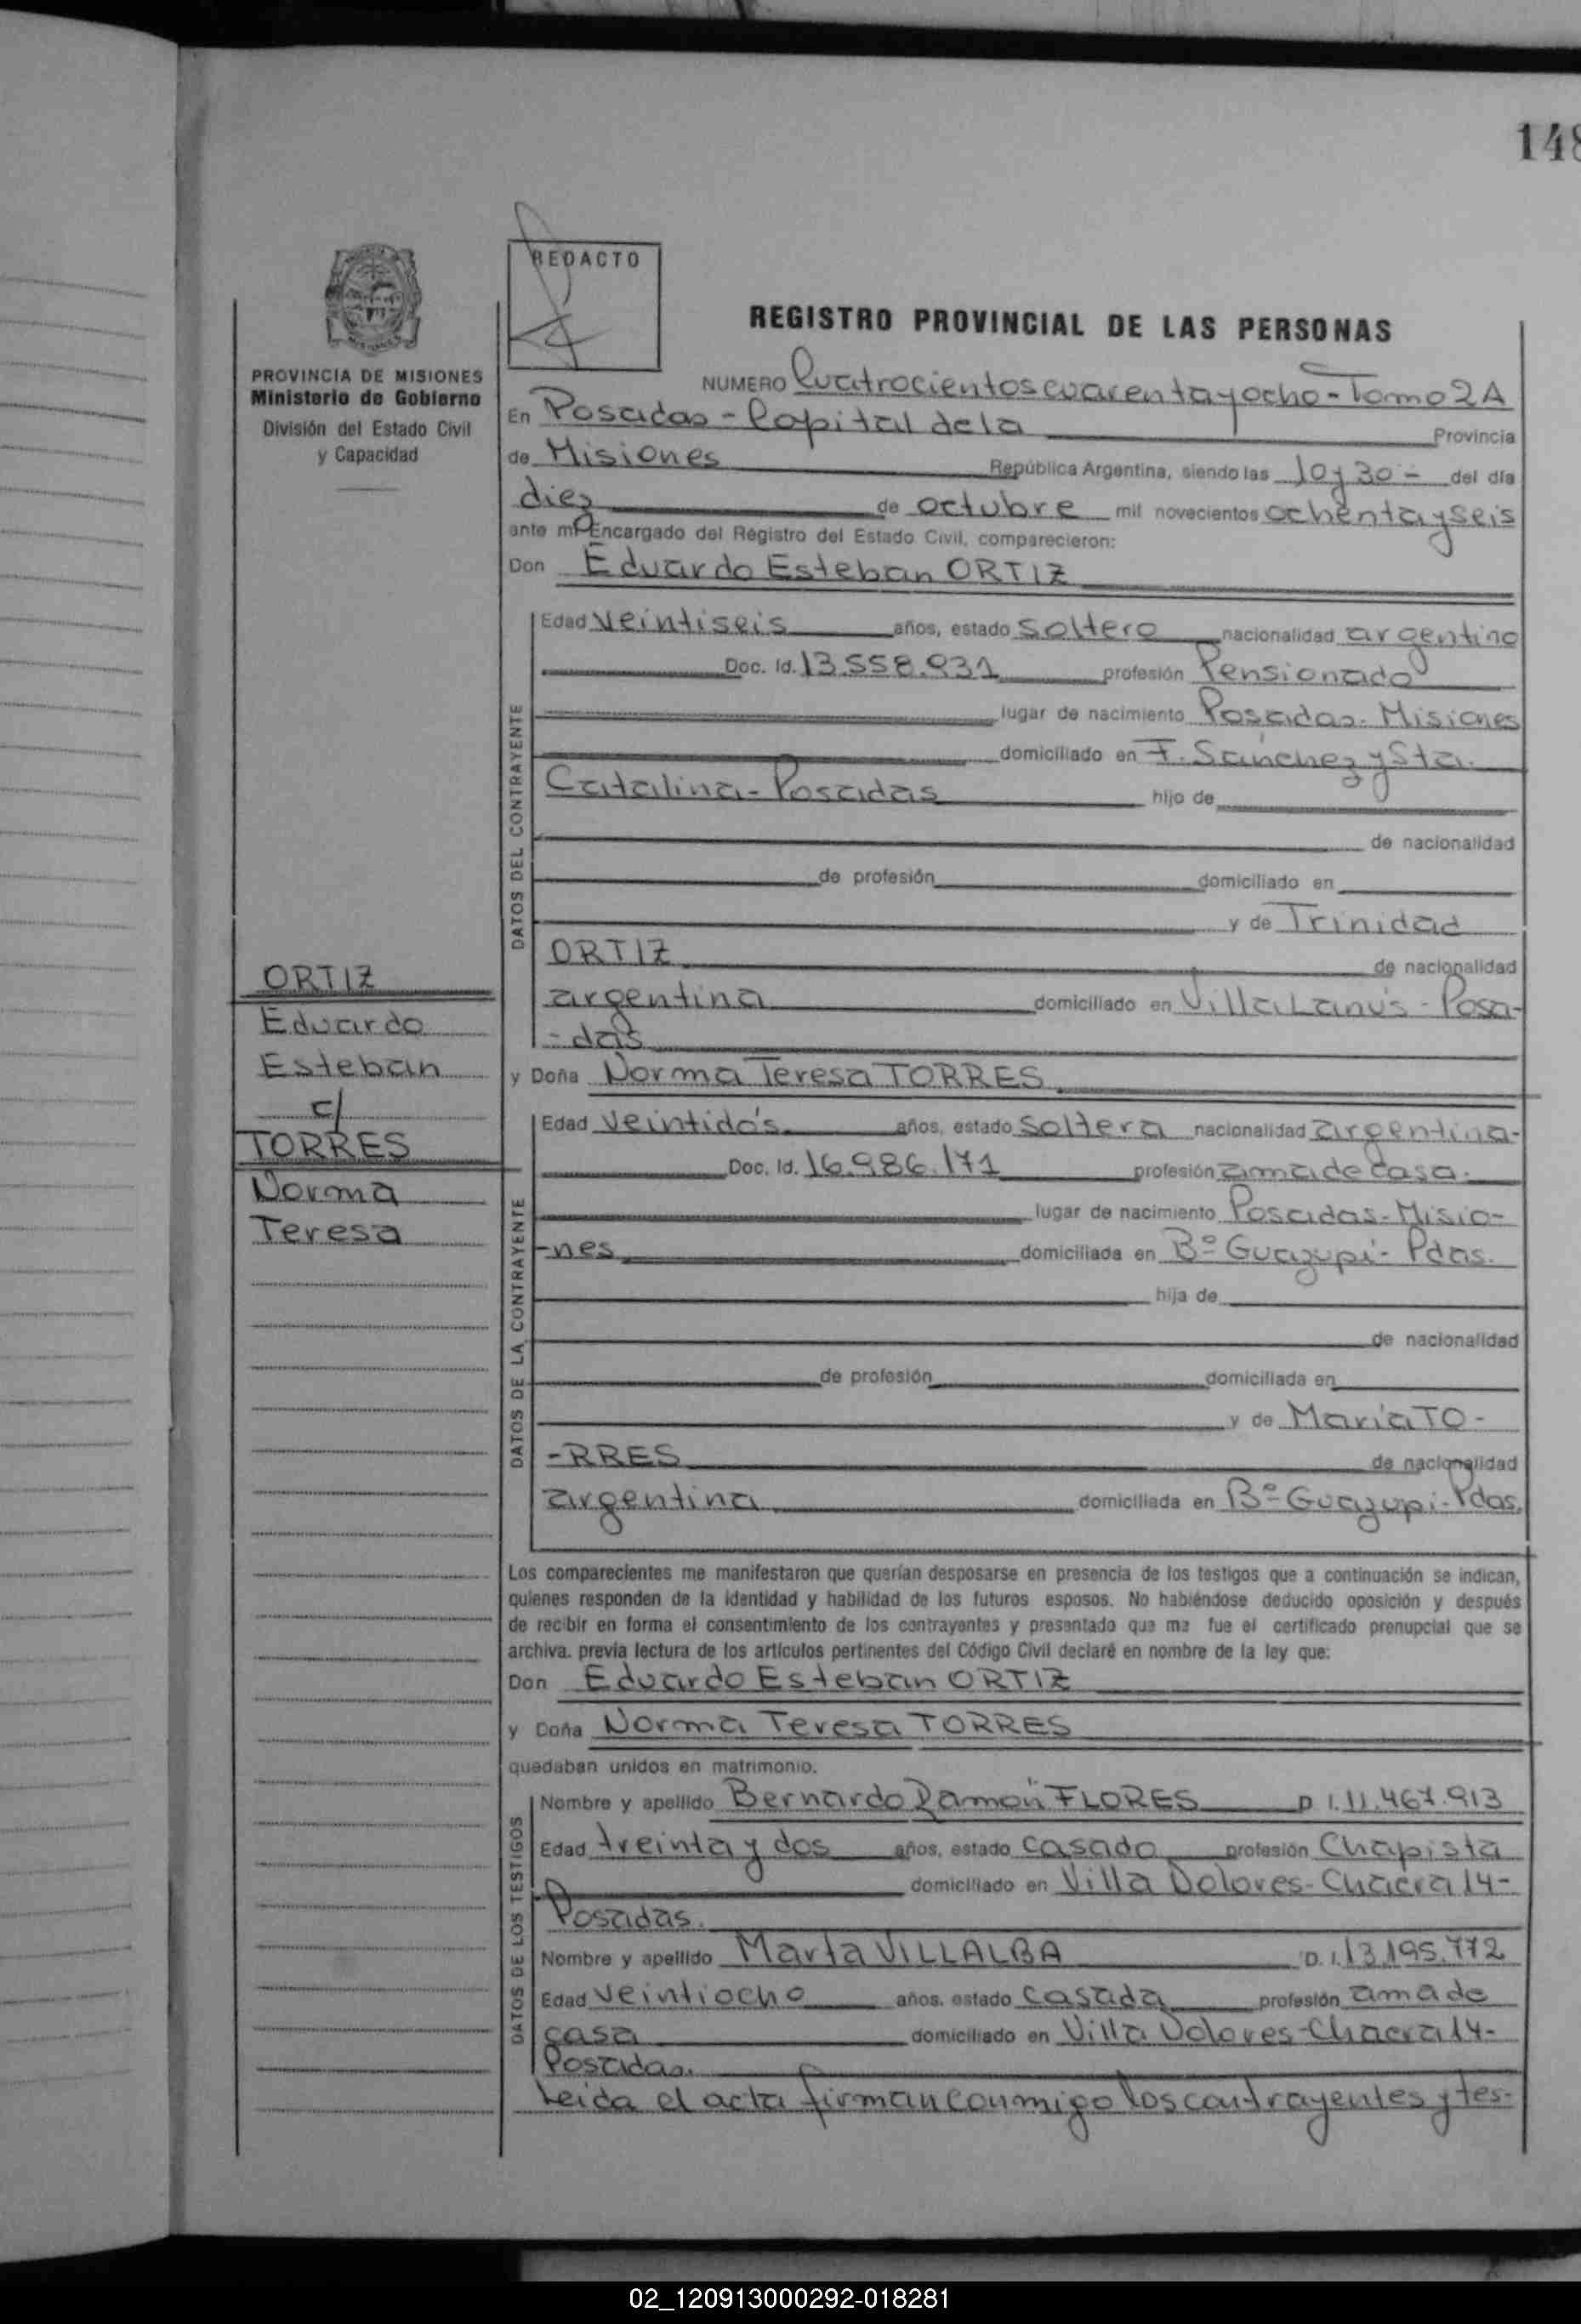 148
REDACTO
REGISTRO PROVINCIAL DE LAS PERSONAS
PROVINCIA DE MISIONES
Ministerio de Gobierno
División del Estado Civil
y Capacidad
NUMERO Cuatrocientos cuarenta y ocho - Tomo 2A
En Posadas - Capital de la Provincia
de Misiones República Argentina, siendo las 10 y 30 - del día
diez de octubre mil novecientos ochenta y seis
ante mí Encargado del Registro del Estado Civil, comparecieron:
Don Eduardo Esteban ORTIZ
DATOS DEL CONTRAYENTE
Edad veintiseis años, estado soltero nacionalidad argentino
Doc. Id. 13.558.931 profesión Pensionado
lugar de nacimiento Posadas - Misiones
domiciliado en F. Sánchez y Sta.
Catalina - Posadas hijo de
de nacionalidad
de profesión domiciliado en
y de Trinidad
ORTIZ de nacionalidad
argentina domiciliado en Villa Lanús - Posa-
- das
ORTIZ
Eduardo
Esteban
c/
TORRES
Norma
Teresa
y Doña Norma Teresa TORRES
DATOS DE LA CONTRAYENTE
Edad veintidós años, estado soltera nacionalidad argentina-
Doc. Id. 16.986.171 profesión ama de casa.
lugar de nacimiento Posadas - Misio-
-nes domiciliada en Bº Guazupi - Pdas.
hija de
de nacionalidad
de profesión domiciliada en
y de María TO-
-RRES de nacionalidad
argentina domiciliada en Bº Guazupi - Pdas.
Los comparecientes me manifestaron que querían desposarse en presencia de los testigos que a continuación se indican,
quienes responden de la identidad y habilidad de los futuros esposos. No habiéndose deducido oposición y después
de recibir en forma el consentimiento de los contrayentes y presentado que me fue el certificado prenupcial que se
archiva. previa lectura de los artículos pertinentes del Código Civil declaré en nombre de la ley que:
Don Eduardo Esteban ORTIZ
y Doña Norma Teresa TORRES
quedaban unidos en matrimonio.
DATOS DE LOS TESTIGOS
Nombre y apellido Bernardo Ramón FLORES D.I. 11.467.913
Edad treinta y dos años, estado casado profesión Chapista
domiciliado en Villa Dolores - Chacra 14-
Posadas.
Nombre y apellido Marta VILLALBA D.I. 13.195.772
Edad veintiocho años, estado casada profesión ama de
casa domiciliado en Villa Dolores - Chacra 14-
Posadas.
Leida el acta firman conmigo los contrayentes y tes-
02_120913000292-018281